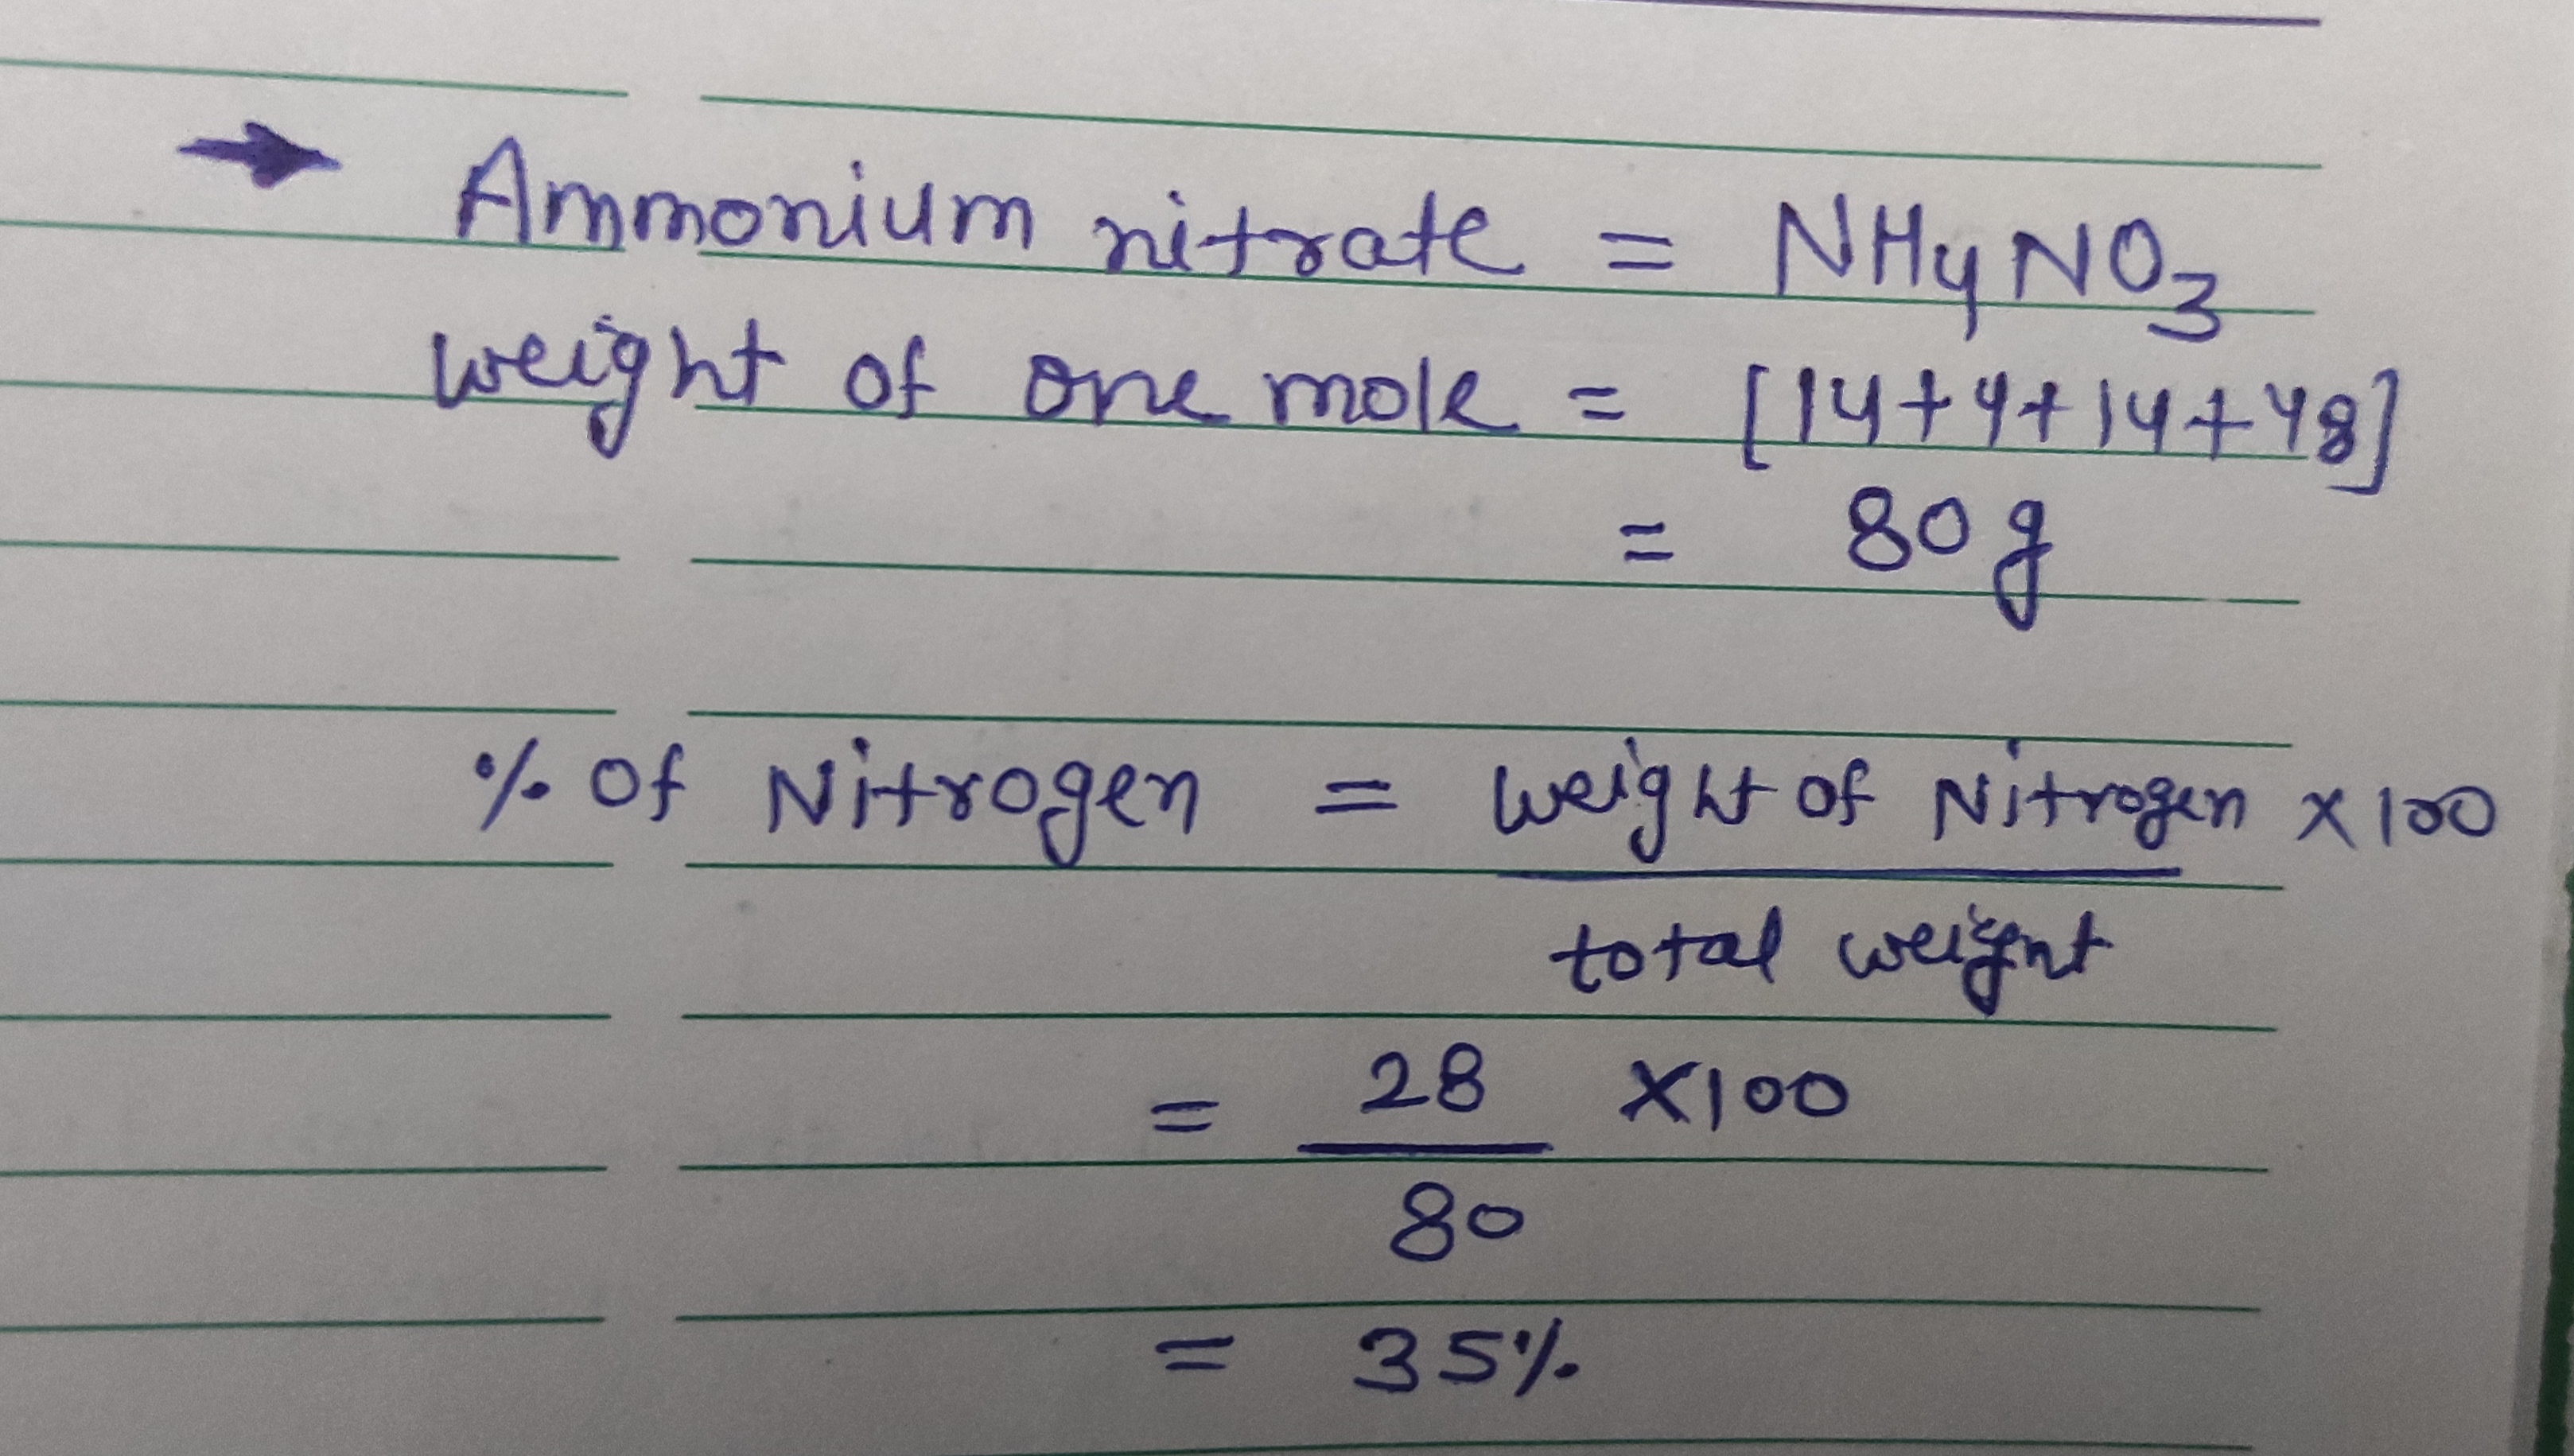 → Ammonium nitrate = NH4NO3
weight of one mole = [14+4+14+48]
= 80g
% of Nitrogen = weight of Nitrogen x 100
total weight
= 28 x100
80
= 35%